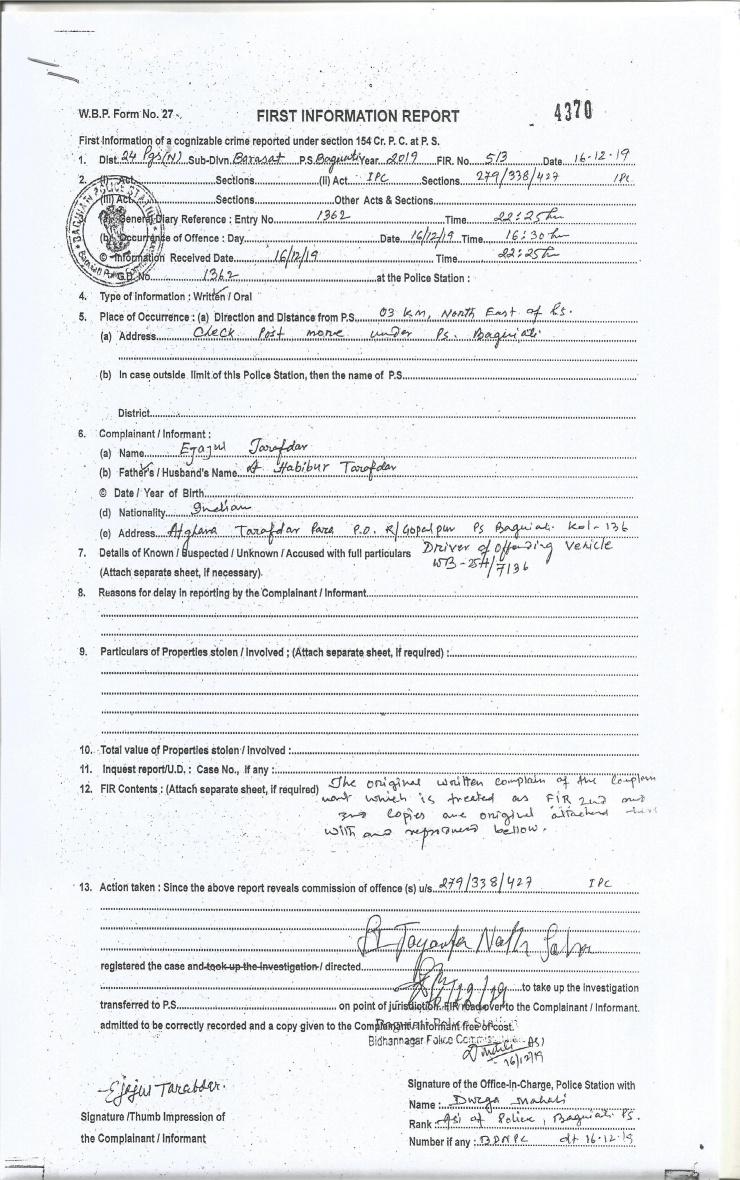 4370
W.B.P. Form No. 27
FIRST INFORMATION REPORT
First Information of a cognizable crime reported under section 154 Cr. P. C. at P. S.
1. Dist. 24 Pgs(N) Sub-Dlvn. Barasat P.S. Baguiati Year 2019 FIR. No. 513 Date 16-12-19
2. (i) Act Sections (ii) Act IPC Sections 279/338/427 IPC
(iii) Act Sections Other Acts & Sections
(a) General Diary Reference : Entry No. 1362 Time 22:25 hr
(b) Occurrence of Offence : Day Date 16/12/19 Time 16:30 hr
© Information Received Date 16/12/19 Time 22:25 hr
G.D. No. 1362 at the Police Station :
4. Type of Information : Written / Oral
5. Place of Occurrence : (a) Direction and Distance from P.S. 03 KM, North East of Ps.
(a) Address Check Post more under Ps. Baguiati
(b) In case outside limit of this Police Station, then the name of P.S.
District
6. Complainant / Informant :
(a) Name Ejajul Tarafdar
(b) Father's / Husband's Name Habibur Tarafdar
© Date / Year of Birth
(d) Nationality Indian
(e) Address Atghara Tarafdar Para P.O. R/Gopalpur Ps Baguiati Kol-136
7. Details of Known / Suspected / Unknown / Accused with full particulars Driver of offending vehicle
(Attach separate sheet, if necessary). WB-25H/7136
8. Reasons for delay in reporting by the Complainant / Informant
9. Particulars of Properties stolen / Involved ; (Attach separate sheet, if required) :
10. Total value of Properties stolen / Involved :
11. Inquest report/U.D. : Case No., if any :
12. FIR Contents : (Attach separate sheet, if required) The original written complain of the Complain
nant which is treated as FIR 2nd and
3rd copies are original attached here
with and reproduced bellow.
13. Action taken : Since the above report reveals commission of offence (s) u/s. 279/338/427 IPC
Jayanta Nath Saha
registered the case and took up the investigation / directed
to take up the investigation
transferred to P.S. on point of jurisdiction. FIR read over to the Complainant / Informant.
admitted to be correctly recorded and a copy given to the Complainant / Informant free of cost.
Bidhannagar Police
ASI
16/12/19
Ejajul Tarabdar.
Signature /Thumb Impression of
the Complainant / Informant
Signature of the Office-In-Charge, Police Station with
Name : Durga Mahali
Rank : Asi of Police, Baguiati Ps.
Number if any : BDNPC dt 16-12-19